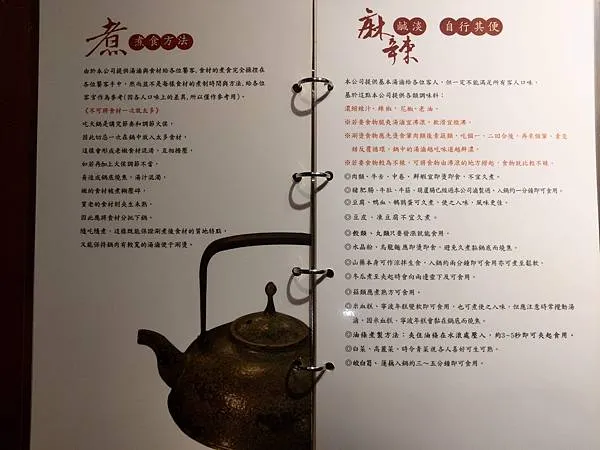 煮 煮食方法
由於本公司提供湯滷與食材給各位饕客，食材的煮食完全操控在
各位饕客手中，然而並不是每樣食材的煮制時間與方法，給各位
客官作為參考(因各人口味上的差異，所以僅作參考用)。
《不可將食材一次放太多》
吃火鍋是講究節奏和調節火侯，
因此切忌一次在鍋中放入太多食材，
這樣會形成老嫩食材混淆，互相擠壓，
如若再加上火侯調節不當，
易造成鍋底燒焦，湯汁混濁，
嫩的食材被煮糊壓碎，
質老的食材則夾生未熟。
因此應將食材分批下鍋，
隨吃隨煮，這樣既能保證涮煮後食材的質地特點，
又能保持鍋內有較寬的湯滷便于涮燙。
麻辣 鹹淡 自行其便
本公司提供基本湯滷給各位客人，但一定不能滿足所有客人口味，
基於這點本公司提供各類調味料：
濃縮辣汁、辣椒、花椒、老油。
※若要食物脫爽湯滷宜沸滾，軟滑宜微沸。
※涮燙食物應先燙食葷肉類後素蔬類，吃個一、二回合後，再來個葷、素意
錯反覆循環，鍋中的湯滷越吃味道越鮮濃。
※若要食物較為不辣，可將食物由沸滾的地方撈起，食物就比較不辣。
◎肉類、牛舌、中卷、鮮蝦宜即燙即食，不宜久煮。
◎豬肥腸、牛肚、牛筋、胡蘆腸已經過本公司滷製過，入鍋約一分鐘即可食用。
◎豆腐、鴨血、鵪鶉蛋可久煮，使之入味，風味更佳。
◎豆皮、凍豆腐不宜久煮。
◎餃類、丸類只要發漲就能食用。
◎水晶粉、烏龍麵應即燙即食，避免久煮黏鍋底而燒焦。
◎山藥本身可作涼拌生食，入鍋約兩分鐘即可食用亦可煮至鬆軟。
◎冬瓜煮至夾起時會向兩邊垂下及可食用。
◎菇類應煮熟方可食用。
◎米血糕、寧波年糕變軟即可食用，也可煮使之入味，但應注意時常攪動湯
滷，因米血糕、寧波年糕會黏在鍋底而燒焦。
◎油條煮製方法：夾住油條在水滾處壓入，約3~5秒即可夾起食用。
◎白菜、高麗菜、時令青菜視各人喜好可生可熟。
◎皎白筍、蓮藕入鍋約三~五分鐘即可食用。